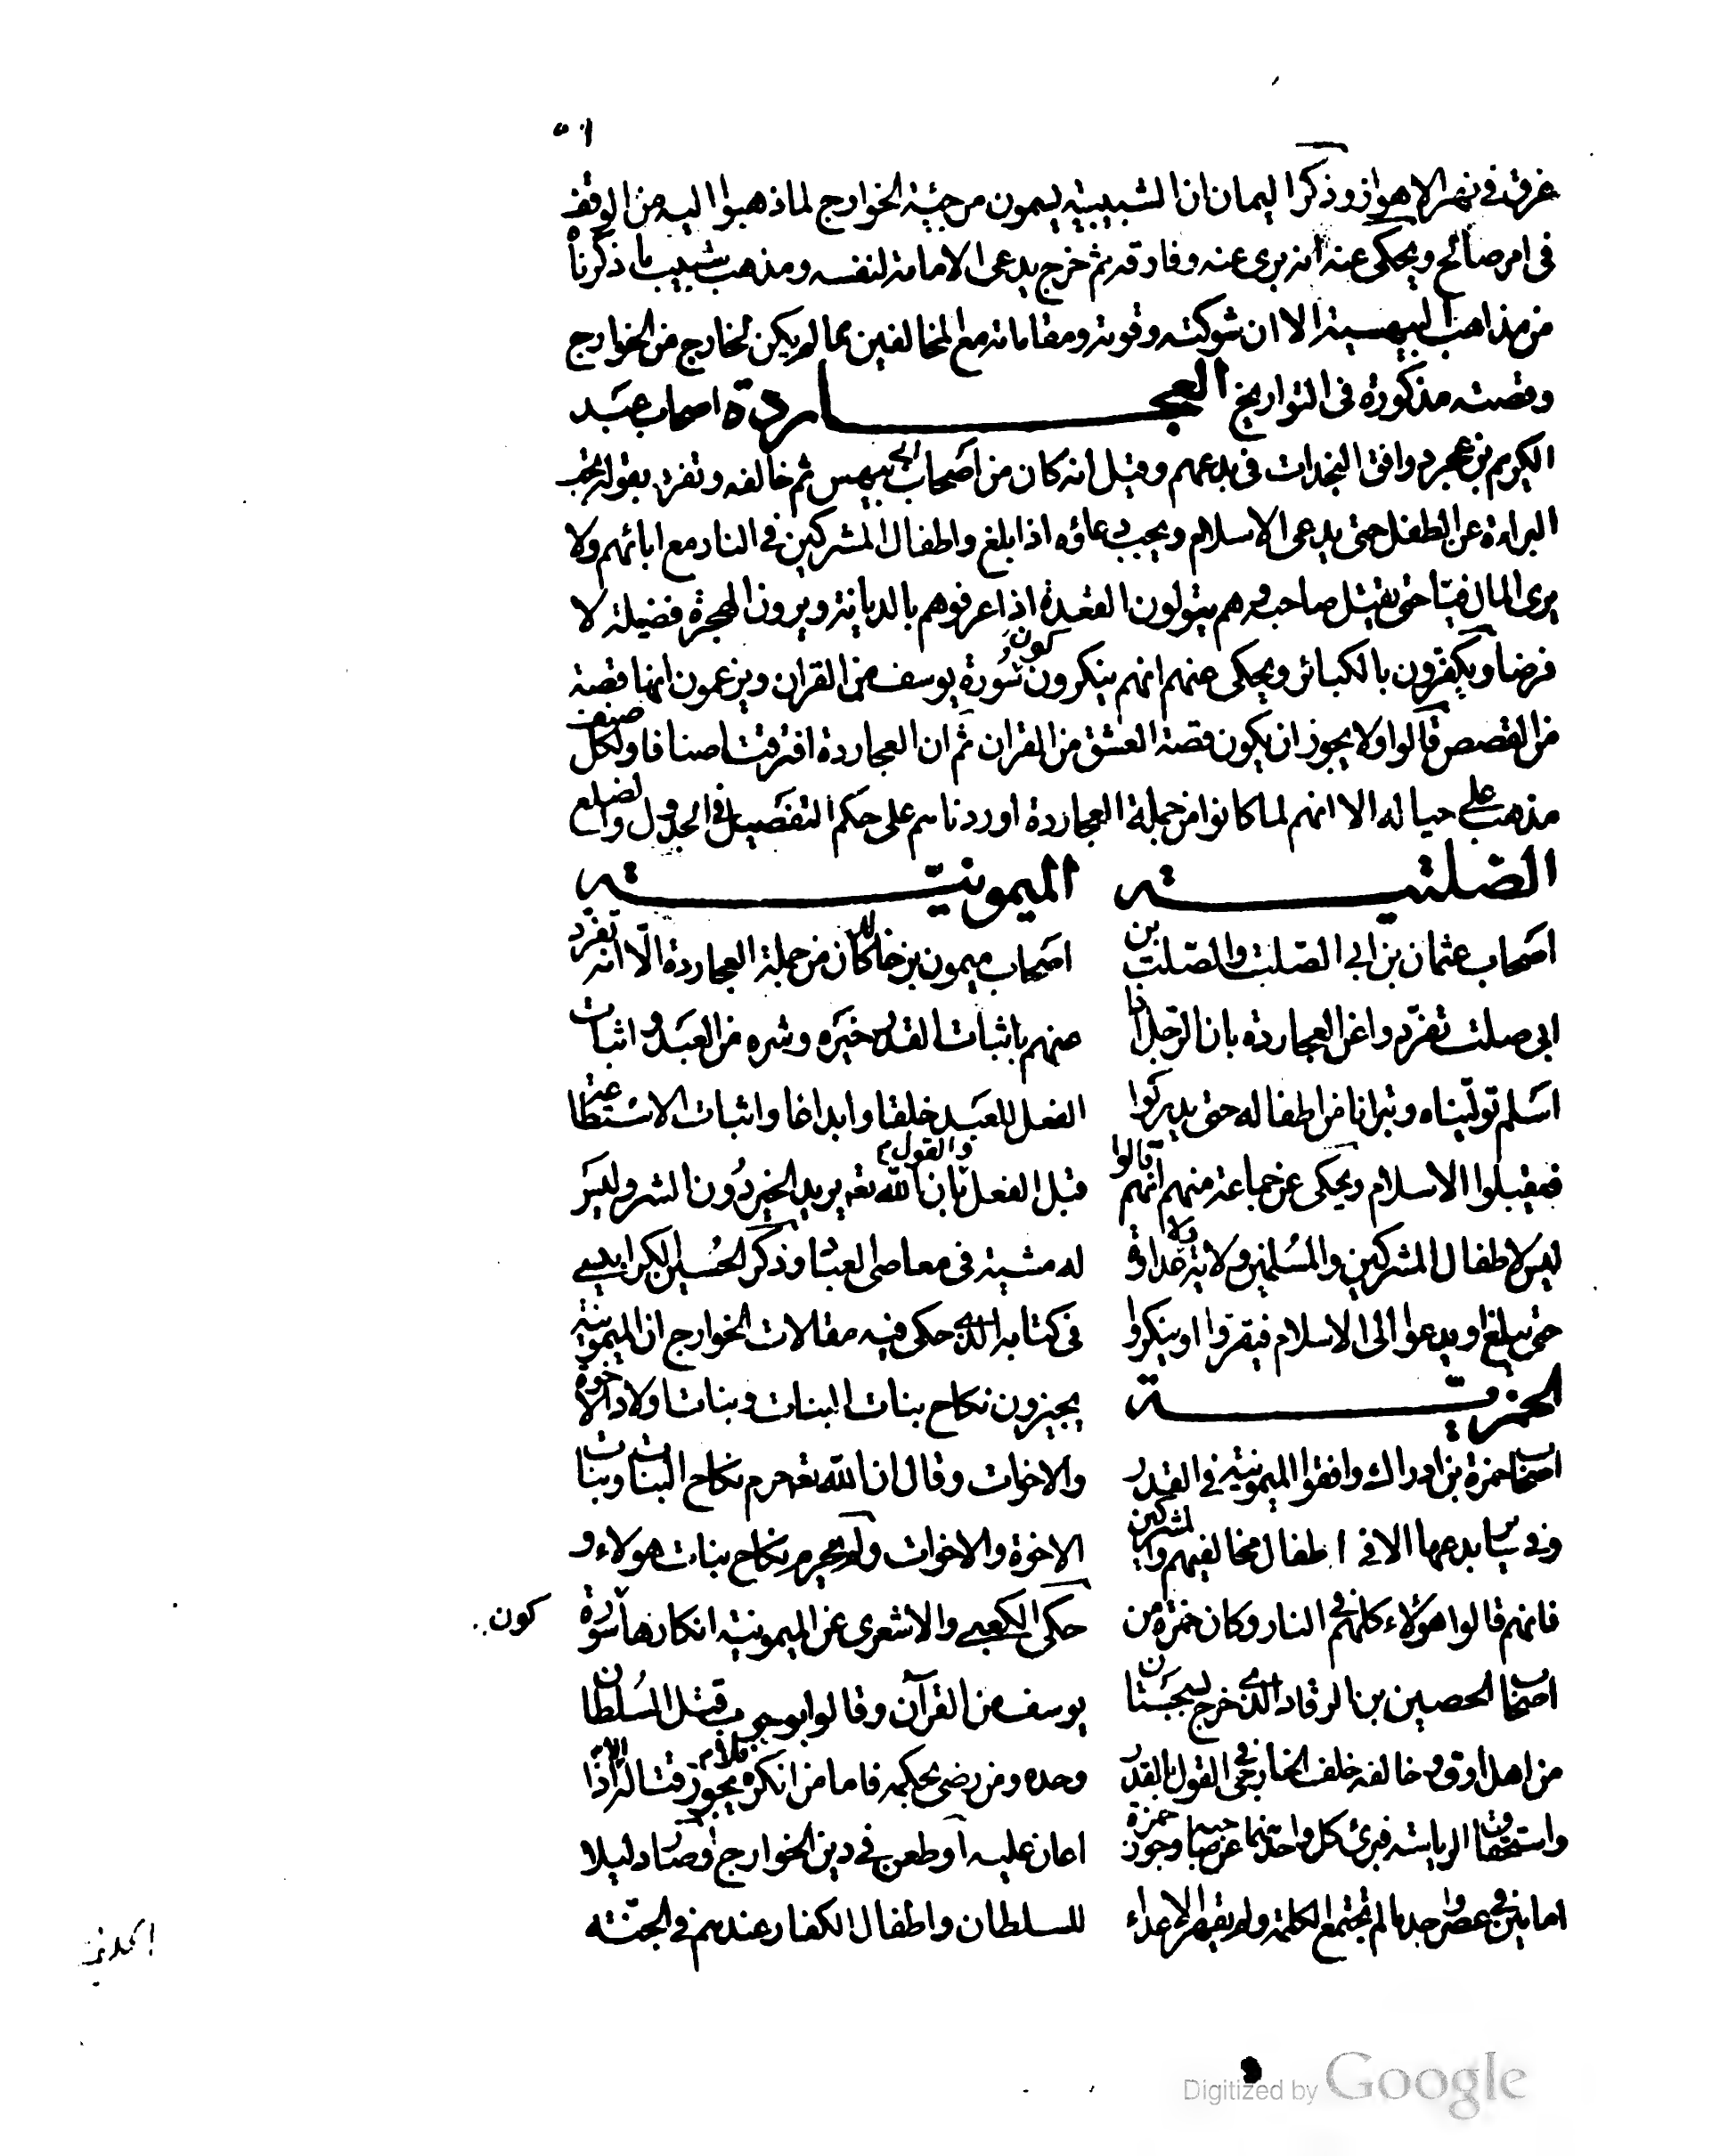 ٥١
غرق في نهر الاهواز وذكر اليمان ان الشبيبية يسمون مرجئة الخوارج لما ذهبوا اليه من الوقف
في امر صالح ويحكى عنه انه برى عنه وفارقه ثم خرج يدعى الامامة لنفسه ومذهب شبيب ما ذكرناه
من مذاهب البيهسية الا ان شوكته وقوته ومقاماته مع المخالفين مما لم يكن لخارج من الخوارج
وقصته مذكورة في التواريخ العجاردة اصحاب عبد
الكريم بن عجرد وافق النجدات في بدعهم وقيل انه كان من اصحاب ابي بيهس ثم خالفه وتفرد بقوله تجب
البراءة عن الطفل حتى يدعى الاسلام ويجب دعاؤه اذا بلغ واطفال المشركين في النار مع ابائهم ولا
يرى المال فيئا حتى يقتل صاحبه وهم يتولون القعدة اذا عرفوهم بالديانة ويرون الهجرة فضيلة لا
فرضا ويكفرون بالكبائر ويحكى عنهم انهم ينكرون كون سورة يوسف من القران ويزعمون انها قصة
من القصص قالوا ولا يجوز ان يكون قصة العشق من القران ثم ان العجاردة افترقت اصنافا ولكل صنف
مذهب على حياله الا انهم لما كانوا من جملة العجاردة اوردناهم على حكم التفصيل في الجدول والضلع
الصلتيه
اصحاب عثمان بن ابي الصلت والصلت بن
ابي صلت تفردوا عن العجاردة بان الرجل اذا
اسلم توليناه وتبرانا من اطفاله حتى يدركوا
فيقبلوا الاسلام ويحكى عن جماعة منهم انهم قالوا
ليس لاطفال المشركين والمسلمين ولاية ولا عداوة
حتى يبلغوا ويدعوا الى الاسلام فيقروا او ينكروا
الحمزية
اصحاب حمزة بن ادراك وافقوا الميمونية في القدر
وفي سائر بدعها الا في اطفال مخالفيهم والمشركين
فانهم قالوا هؤلاء كلهم في النار وكان حمزة من
اصحاب الحصين بن الرقاد الذي خرج بسجستان
من اهل اوق وخالفه خلف الخارجي في القول بالقدر
واستحقاق الرياسة فبرئ كل واحد منهما عن صاحبه وجوز حمزة
امامين في عصر واحد ما لم تجتمع الكلمة ولم يقهر الاعداء
الميمونيّه
اصحاب ميمون بن خالد كان من جملة العجاردة الّا انه تفرد
عنهم باثبات القدر خيره وشره من العبد واثبات
الفعل للعبد خلقا وابداعا واثبات الاستطاعة
قبل الفعل والقول بان الله تعه يريد الخير دون الشر وليس
له مشية في معاصي العباد وذكر الحسين الكرابيسي
في كتابه الذي حكى فيه مقالات الخوارج ان الميمونية
يجيزون نكاح بنات البنات وبنات اولاد الاخوة
والاخوات وقال ان الله تعه حرم نكاح البنات وبنات
الاخوة والاخوات ولم يحرم نكاح بنات هولاء و
حكى الكعبي والاشعري عن الميمونية انكارها سورة
كون
يوسف من القرآن وقالوا بوجوب قتل السلطان
وحده ومن رضي بحكمه فاما من انكره فلا يجوز قتاله الا اذا
اعان عليه او طعن في دين الخوارج او صار دليلا
للسلطان واطفال الكفار عندهم في الجنته
Digitized by Google